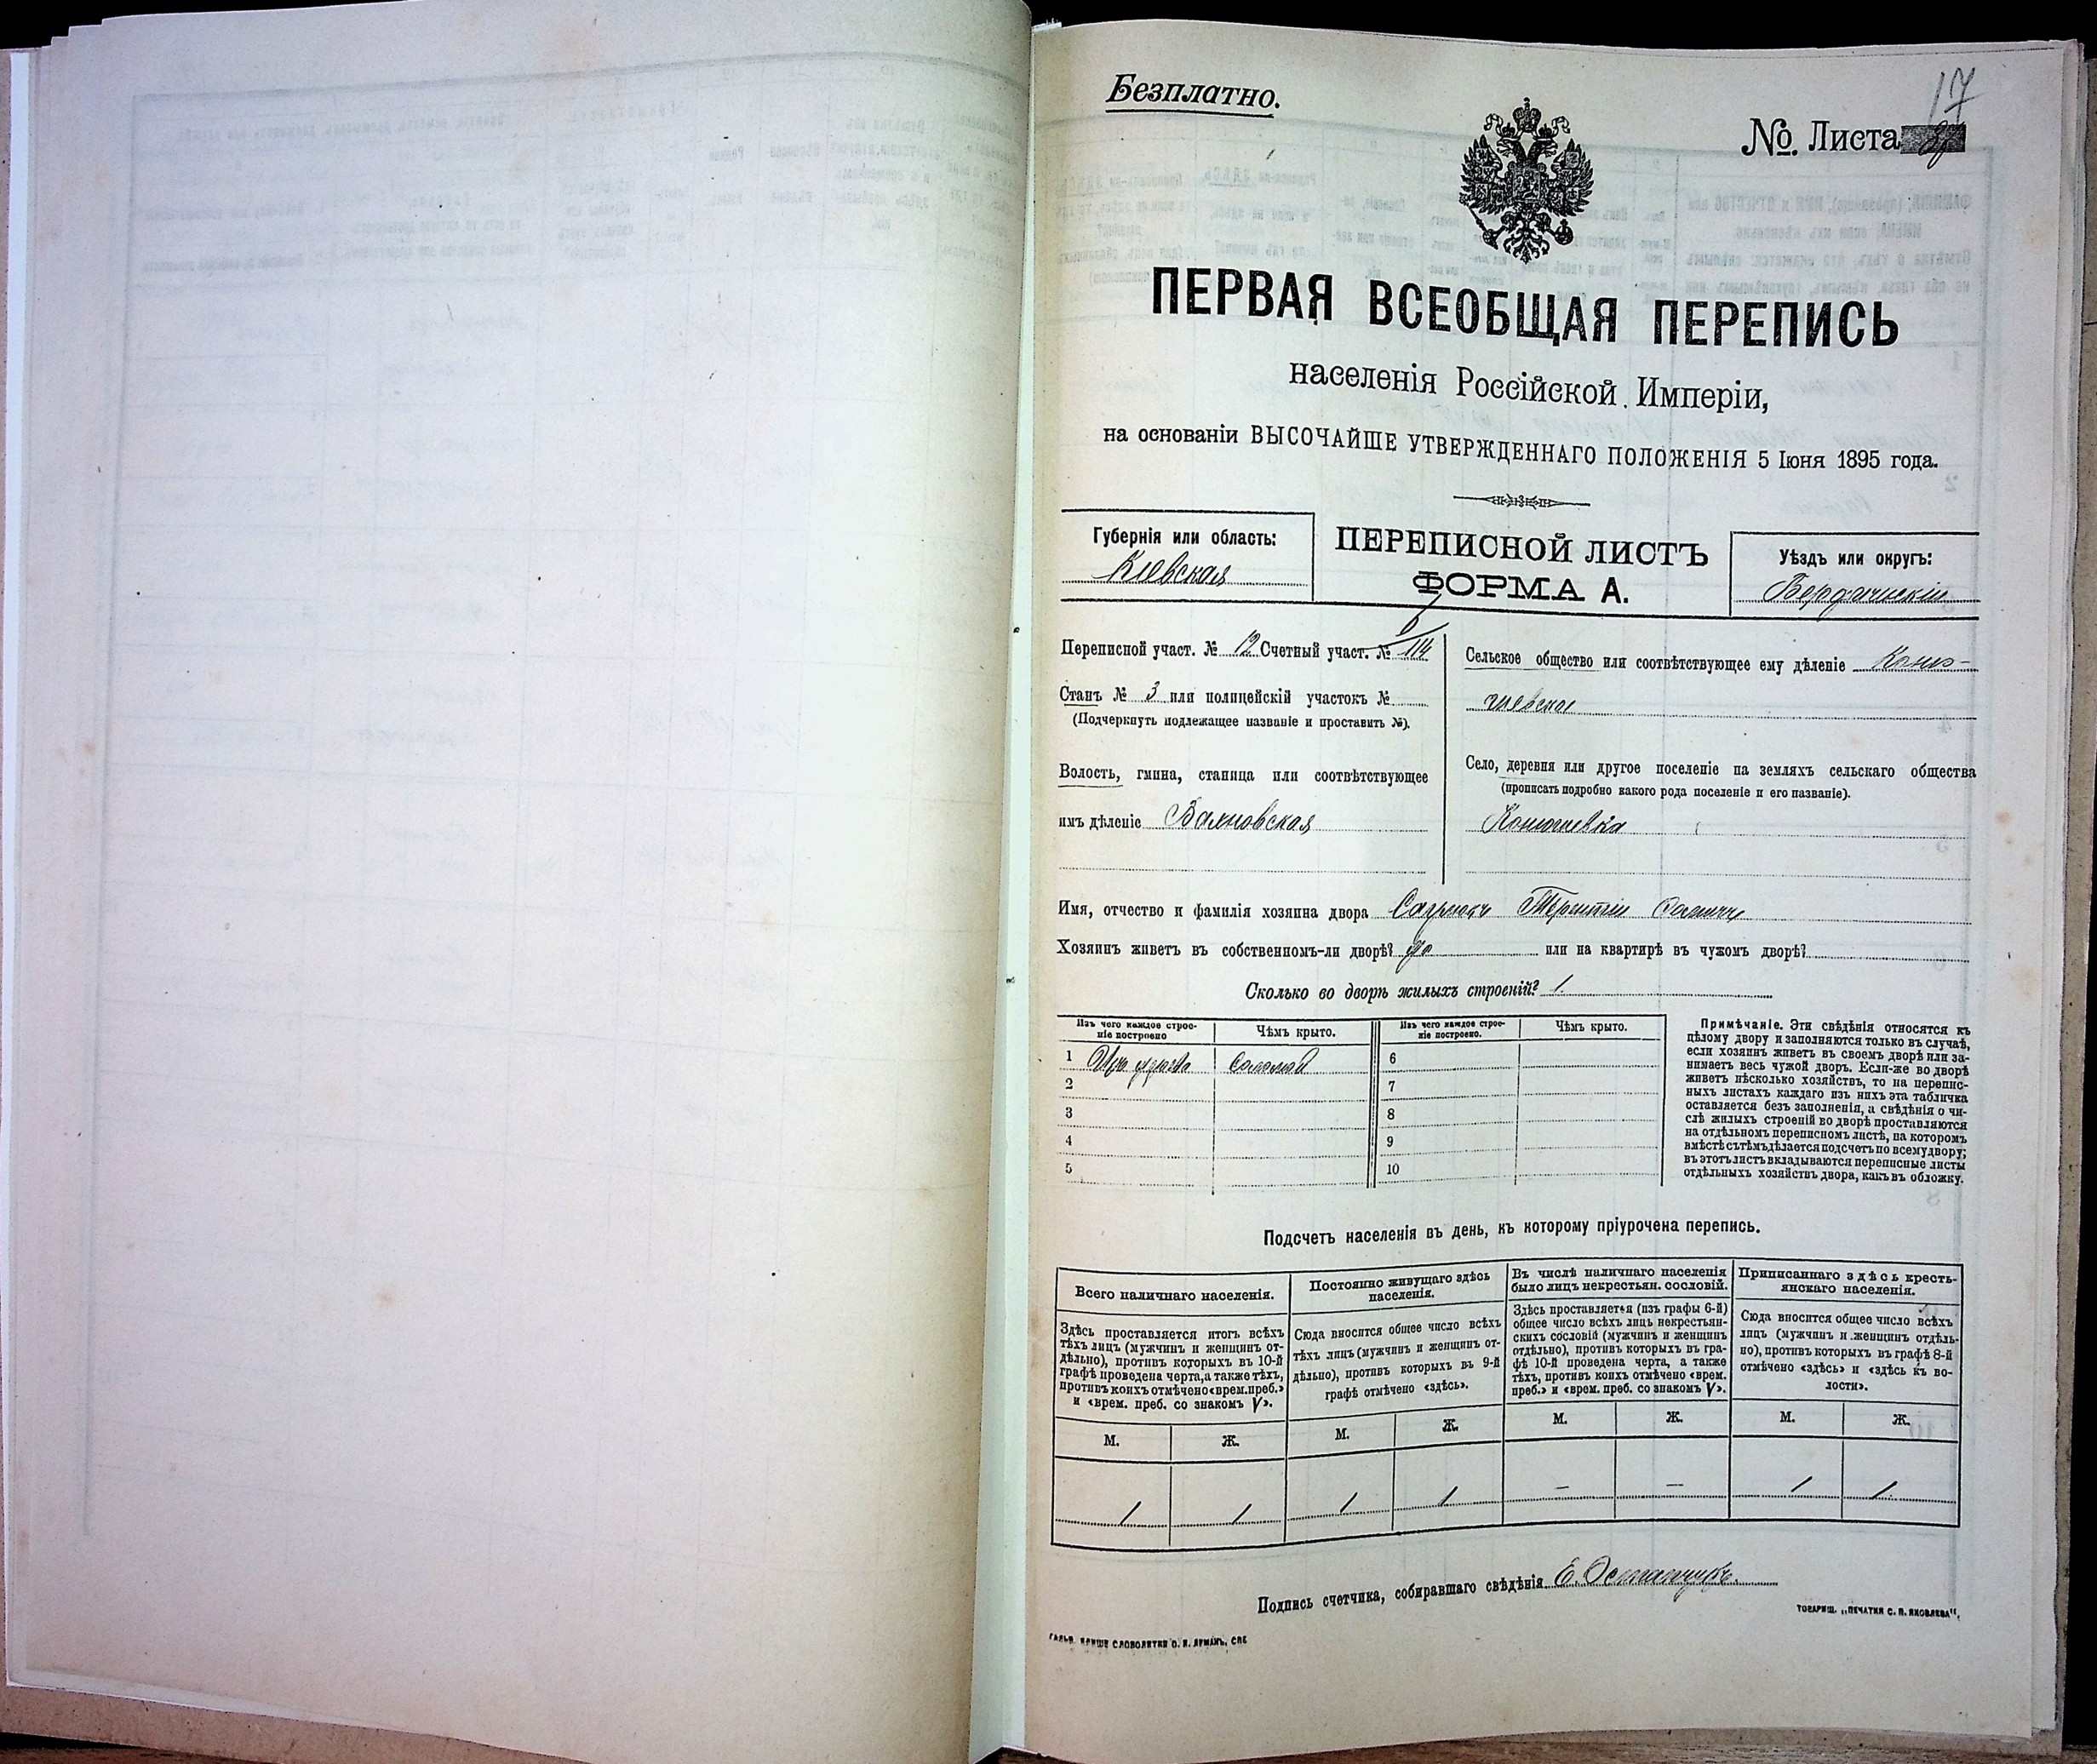 Безплатно.
17
№ Листа
ПЕРВАЯ ВСЕОБЩАЯ ПЕРЕПИСЬ
населенія Россійской Имперіи,
на основаніи ВЫСОЧАЙШЕ УТВЕРЖДЕННАГО ПОЛОЖЕНІЯ 5 Іюня 1895 года.
Губернія или область:
Кіевская
ПЕРЕПИСНОЙ ЛИСТЪ
ФОРМА А.
Уѣздъ или округъ:
Бердичискій
Переписной участ. № 12 Счетный участ. № 114
Станъ № 3 или полицейскій участокъ №
(Подчеркнуть подлежащее названіе и проставить №).
Волость, гмина, станица или соотвѣтствующее
имъ дѣленіе Вахновская
Сельское общество или соотвѣтствующее ему дѣленіе
Село, деревня или другое поселеніе на земляхъ сельскаго общества
(прописать подробно какого рода поселеніе и его названіе).
Конюшевка
Имя, отчество и фамилія хозяина двора Терентій
Хозяинъ живетъ въ собственномъ-ли дворѣ? да или на квартирѣ въ чужомъ дворѣ?
Сколько во дворѣ жилыхъ строеній? 1.
Изъ чего каждое строе-
ніе построено
Чѣмъ крыто.
Изъ чего каждое строе-
ніе построено.
Чѣмъ крыто.
1 Изъ дерева Соломой 6
2 7
3 8
4 9
5 10
Примѣчаніе. Эти свѣдѣнія относятся къ
цѣлому двору и заполняются только въ случаѣ,
если хозяинъ живетъ въ своемъ дворѣ или за-
нимаетъ весь чужой дворъ. Если-же во дворѣ
живетъ нѣсколько хозяйствъ, то на перепис-
ныхъ листахъ каждаго изъ нихъ эта табличка
оставляется безъ заполненія, а свѣдѣнія о чи-
слѣ жилыхъ строеній во дворѣ проставляются
на отдѣльномъ переписномъ листѣ, на которомъ
вмѣстѣ съ тѣмъ дѣлается подсчетъ по всему двору;
въ этотъ листъ вкладываются переписные листы
отдѣльныхъ хозяйствъ двора, какъ въ обложку.
Подсчетъ населенія въ день, къ которому пріурочена перепись.
Всего наличнаго населенія.
Здѣсь проставляется итогъ всѣхъ
тѣхъ лицъ (мужчинъ и женщинъ от-
дѣльно), противъ которыхъ въ 10-й
графѣ проведена черта, а также тѣхъ,
противъ коихъ отмѣчено «врем. преб.»
и «врем. преб. со знакомъ V».
Постоянно живущаго здѣсь
населенія.
Сюда вносится общее число всѣхъ
тѣхъ лицъ (мужчинъ и женщинъ от-
дѣльно), противъ которыхъ въ 9-й
графѣ отмѣчено «здѣсь».
Въ числѣ наличнаго населенія
было лицъ некрестьян. сословій.
Здѣсь проставляется (изъ графы 6-й)
общее число всѣхъ лицъ некрестьян-
скихъ сословій (мужчинъ и женщинъ
отдѣльно), противъ которыхъ въ гра-
фѣ 10-й проведена черта, а также
тѣхъ, противъ коихъ отмѣчено «врем.
преб.» и «врем. преб. со знакомъ V».
Приписаннаго здѣсь кресть-
янскаго населенія.
Сюда вносится общее число всѣхъ
лицъ (мужчинъ и женщинъ отдѣль-
но), противъ которыхъ въ графѣ 8-й
отмѣчено «здѣсь» и «здѣсь къ во-
лости».
М. Ж. М. Ж. М. Ж. М. Ж.
1 1 1 1 — — 1 1
Подпись счетчика, собиравшаго свѣдѣнія Е. Остапчукъ.
ТОВАРИЩ. „ПЕЧАТНЯ С. П. ЯКОВЛЕВА“.